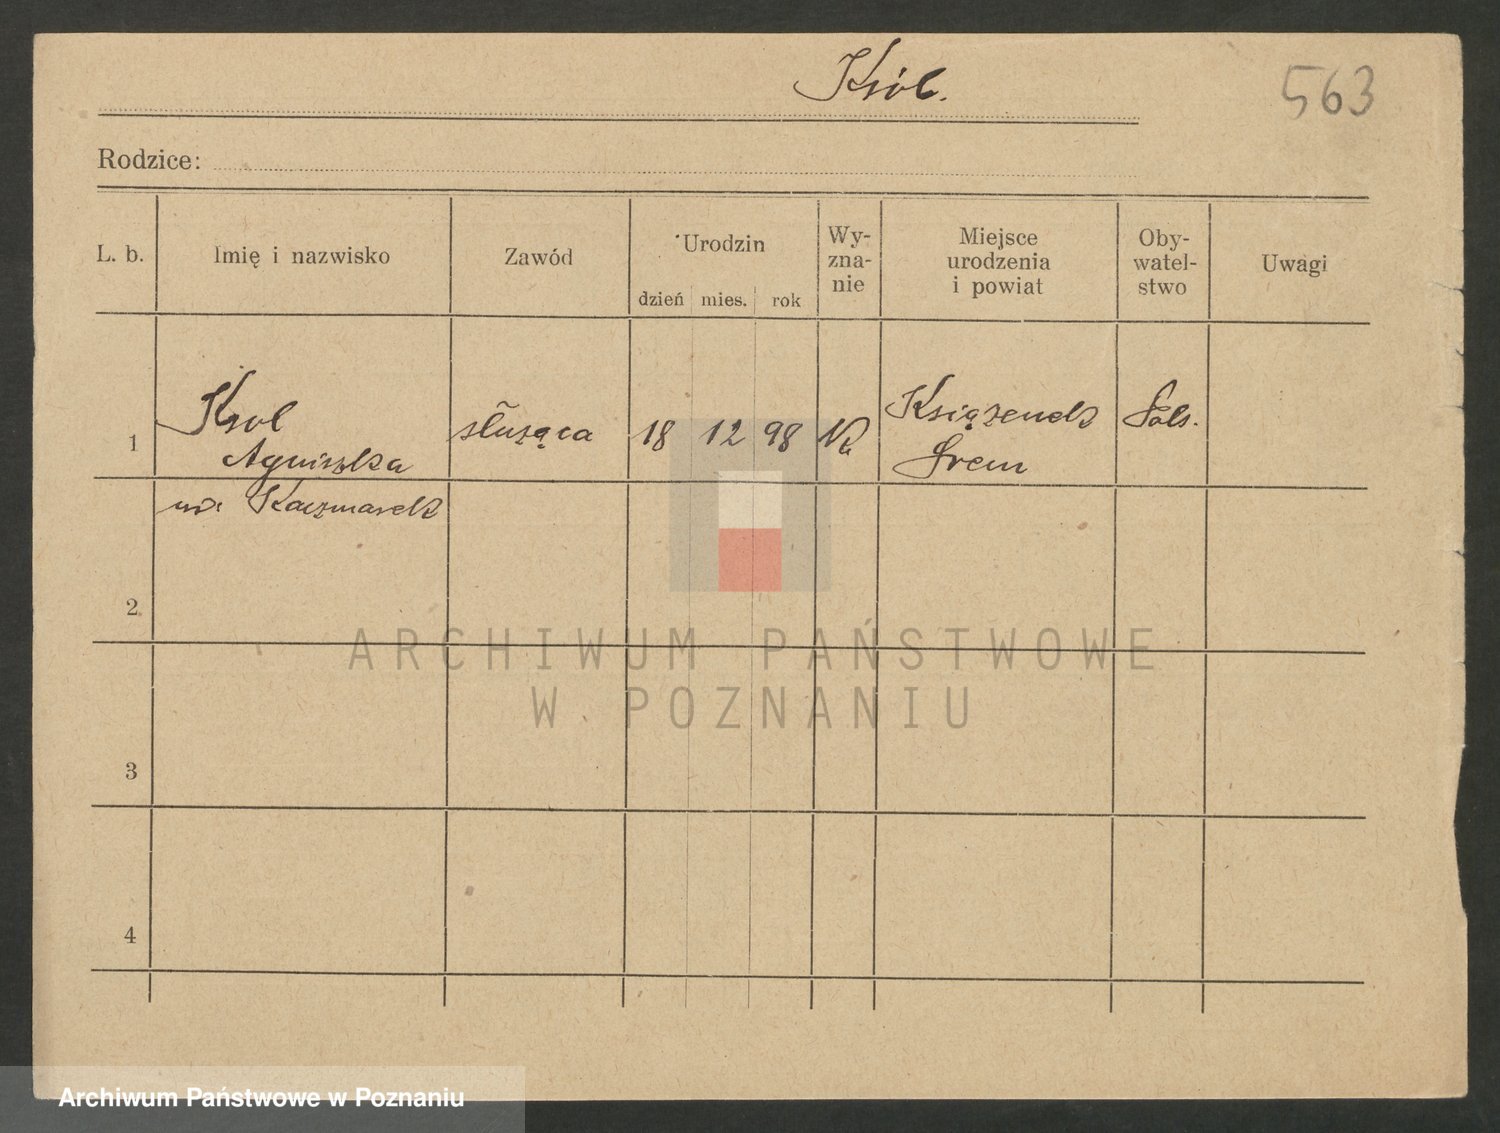 Król.
563
Rodzice:
L. b.
Imię i nazwisko
Zawód
Urodzin
dzień mies. rok
Wy-
zna-
nie
Miejsce
urodzenia
i powiat
Oby-
watel-
stwo
Uwagi
1
Krol
Agniszka
służąca
18 12 98
Książenek
Śrem
Pols.
Kaczmarek
2
3
4
ARCHIWUM PAŃSTWOWE
W POZNANIU
Archiwum Państwowe w Poznaniu